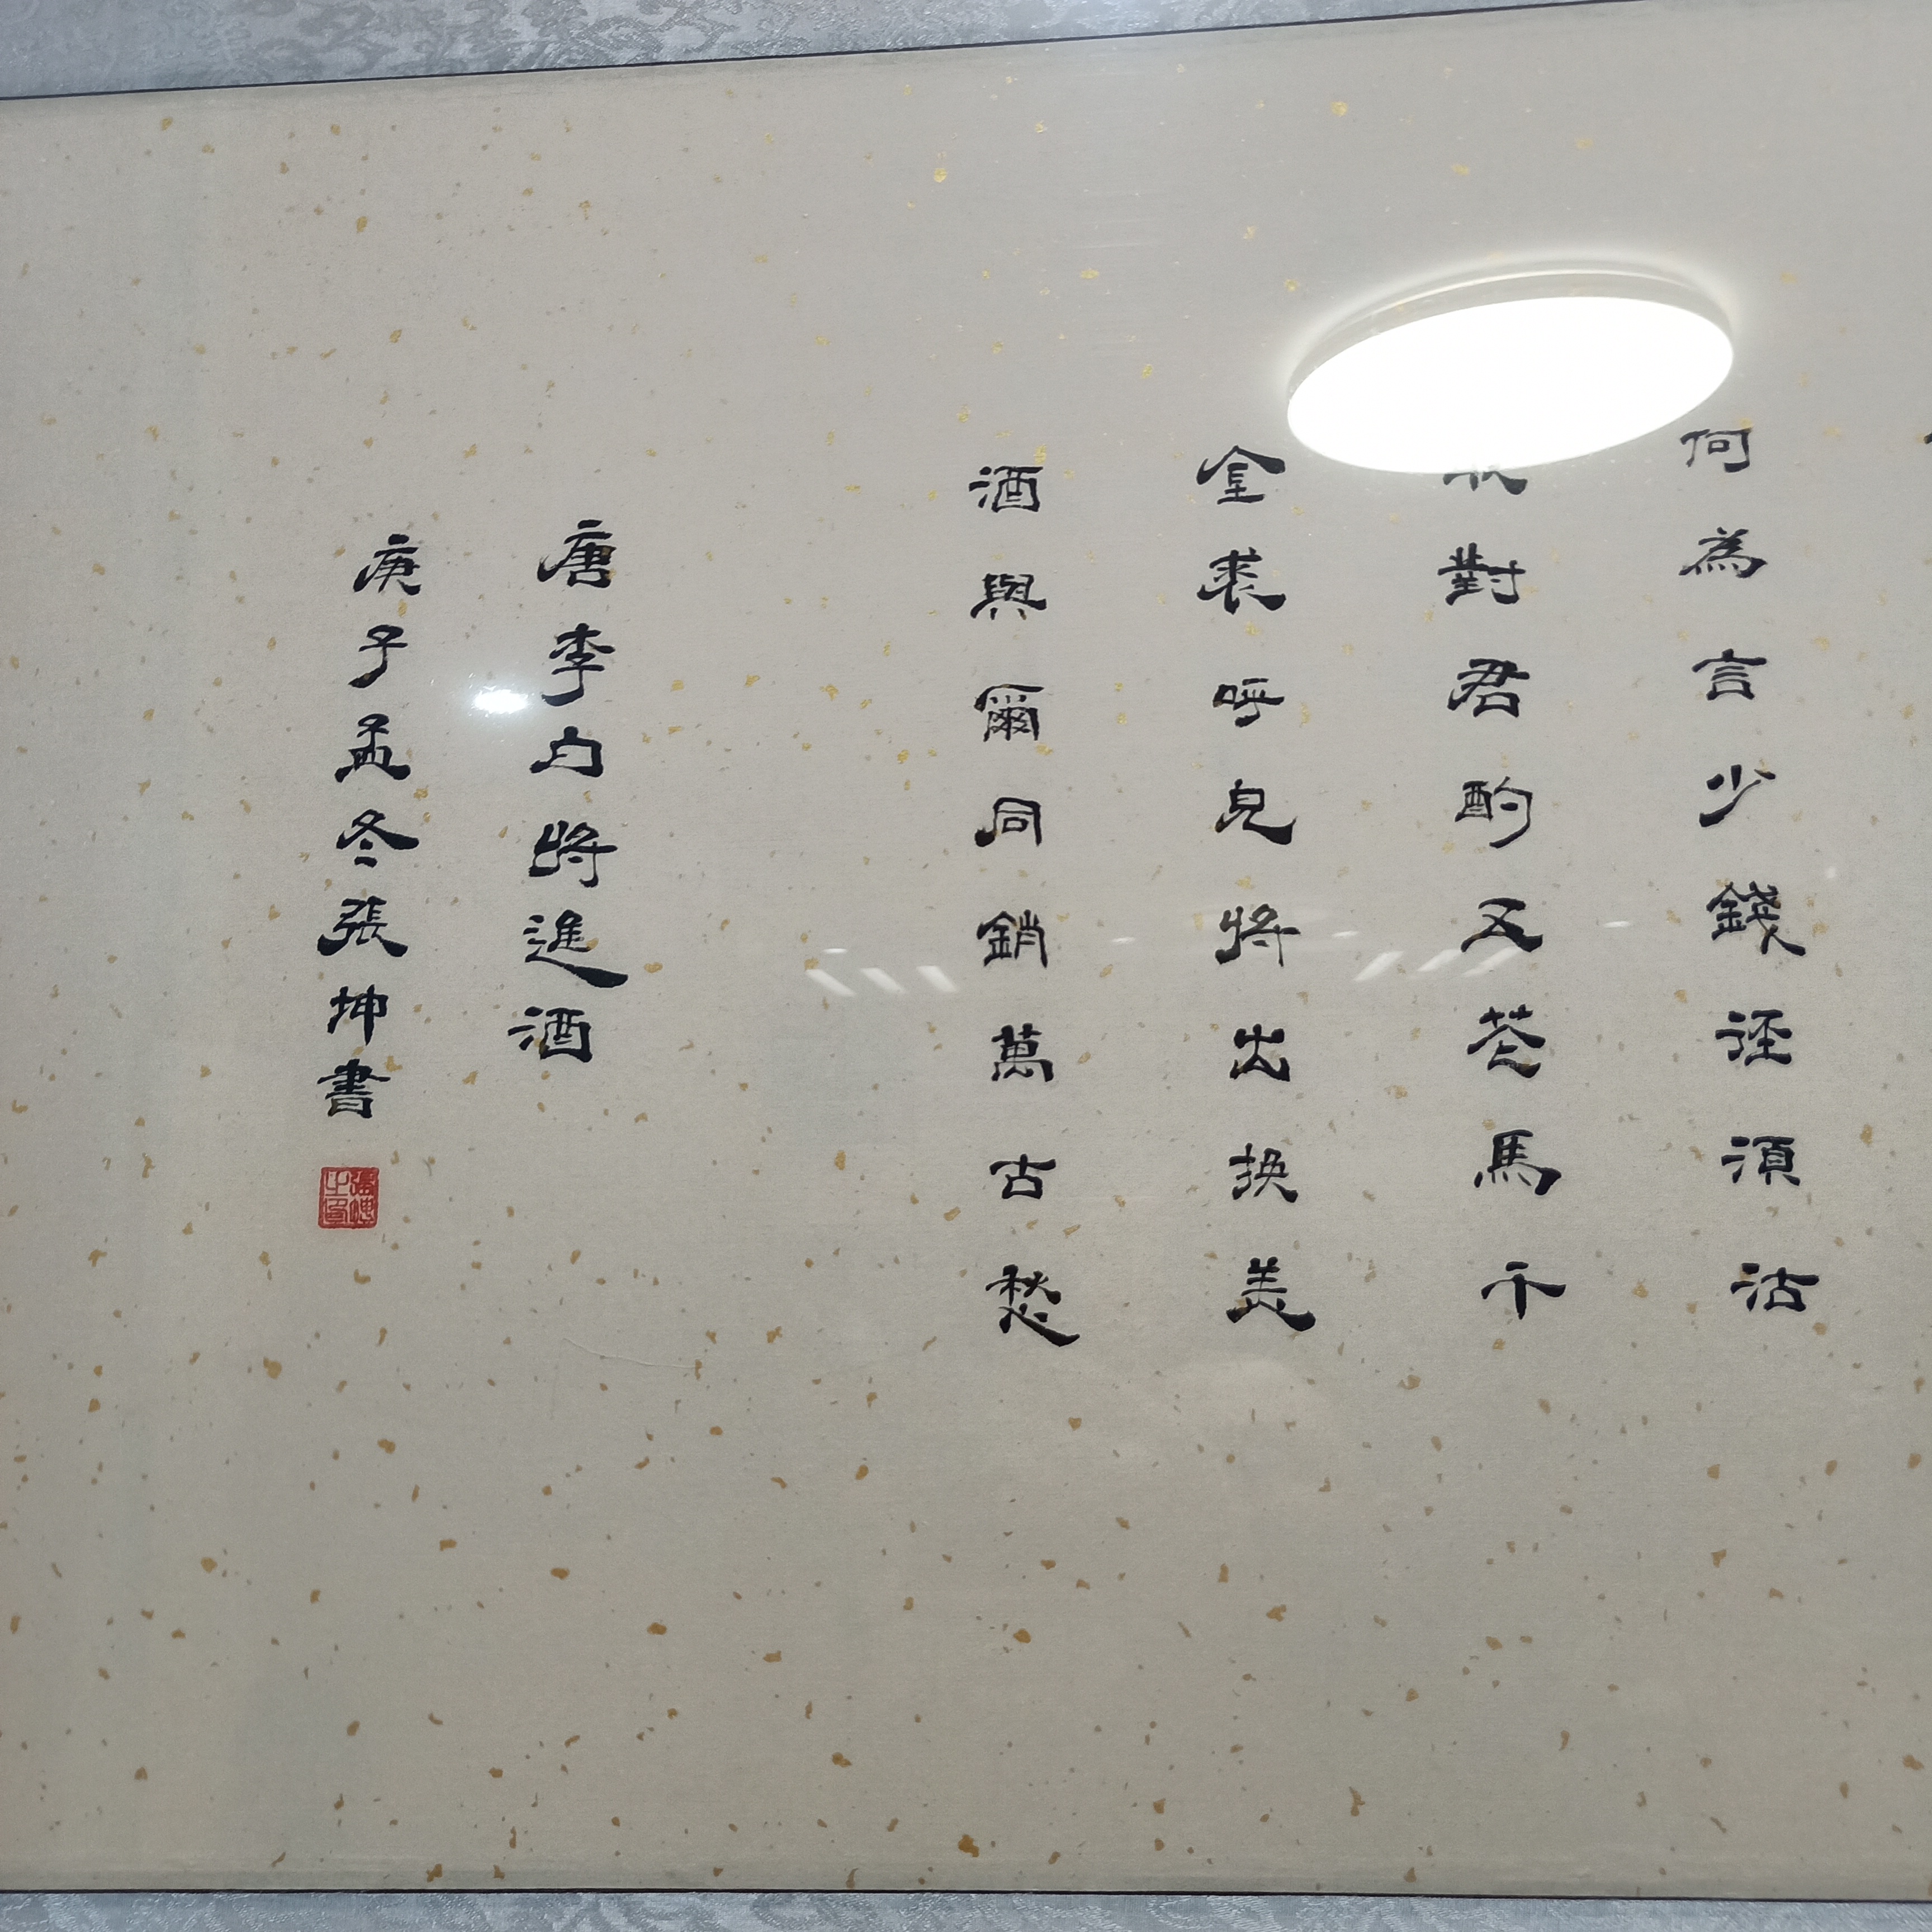 何為言少錢径須沽
取對君酌五花馬千
金裘呼兒將出換美
酒與爾同銷萬古愁
唐李白將進酒
庚子孟冬張坤書
張坤之印